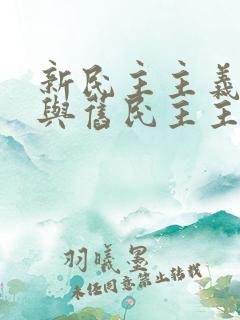 新民主主義
與舊民主主
羽曦墨
未经同意禁止转载